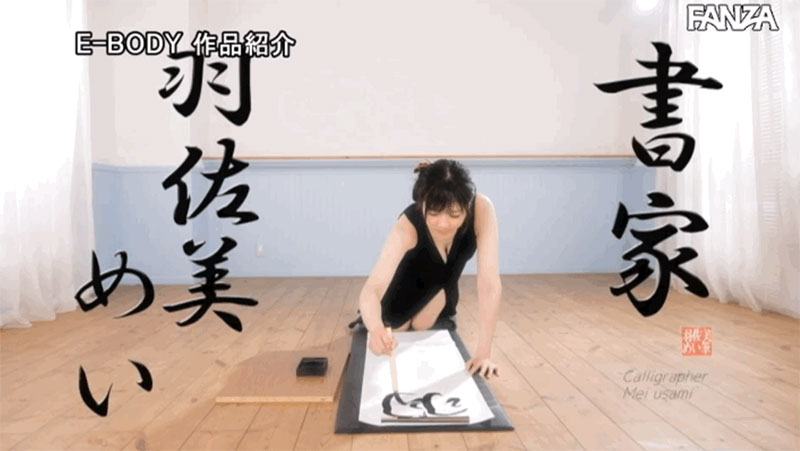 E-BODY 作品紹介
FANZA
書家
羽佐美
めい
Calligrapher
Mei usami